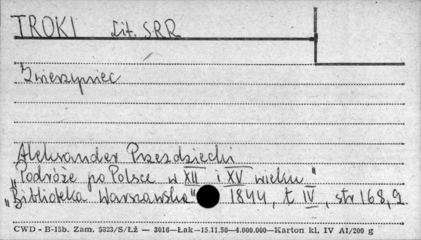 TROKI Lit. SRR
Zwierzyniec
Aleksander Przezdziecki
"Podróże po Polsce w XII i XV wieku"
"Biblioteka Warszawska" 1844, t. IV, str 168,9.
CWD - B-15b. Zam. 5823/S/Łż — 3016—Łak—15.11.50—4.000.000—Karton kl. IV A1/200 g